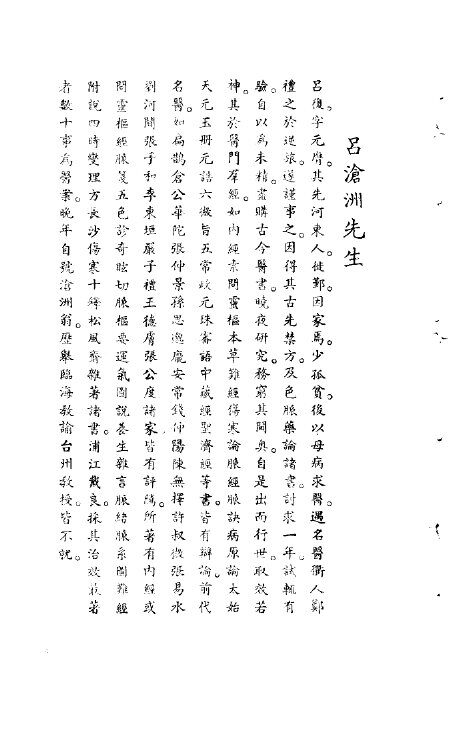 呂滄洲先生
呂復。字元膺。其先河東人。徙鄞。因家焉。少孤貧。後以母病求醫。遇名醫衢人鄭
禮之於逆旅。遂謹事之。因得其古先禁方。及色脈藥論諸書。討求一年。試輒有
驗。自以為未精。盡購古今醫書。曉夜研究。務窮其閫奧。自是出而行世。取效若
神。其於醫門群經。如內經素問靈樞本草難經傷寒論脈經脈訣病原論太始
天元玉冊元誥六微旨五常政元珠密語中藏經聖濟經等書。皆有辯論。前代
名醫。如扁鵲倉公華陀張仲景孫思邈龐安常錢仲陽陳無擇許叔微張易水
劉河間張子和李東垣嚴子禮王德膚張公度諸家。皆有評隲。所著有內經或
問靈樞經脈箋五色診奇眩切脈樞要運氣圖說養生雜言脈緒脈系圖難經
附說四時燮理方長沙傷寒十釋松風齋雜著諸書。浦江戴良。採其治效最著
者數十事為醫案。晚年自號滄洲翁。歷舉臨海教諭台州教授。皆不就。